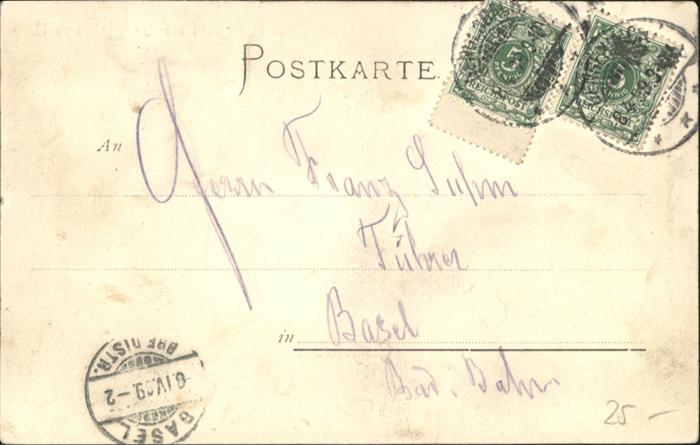 POSTKARTE
5
REICHSPOST
5
An
Herrn Franz
Führer
in Basel
Bad. Bahn
BASEL
6.IV.99.-2
BRF.DISTR.
25 -